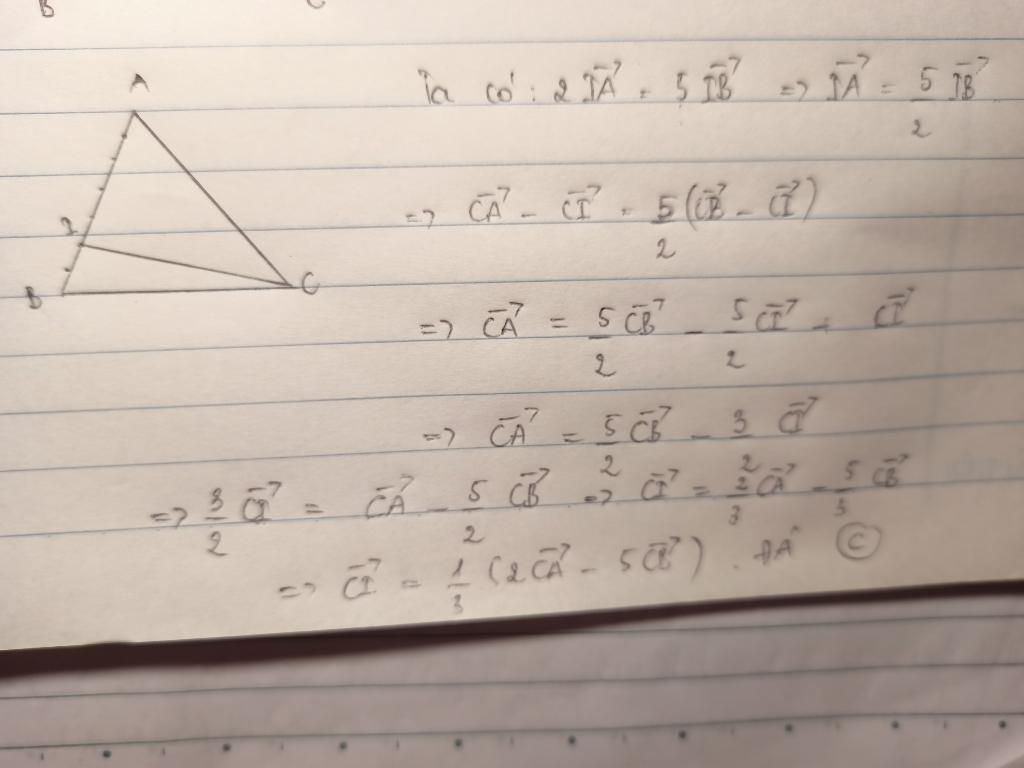 B C
A
Ta có: 2 IA→ = 5 IB→ => IA→ = 5/2 IB→
=> CA→ - CI→ = 5/2 (CB→ - CI→)
I
B C
=> CA→ = 5/2 CB→ - 5/2 CI→ + CI→
=> CA→ = 5/2 CB→ - 3/2 CI→
=> 3/2 CI→ = CA→ - 5/2 CB→ => CI→ = 2/3 CA→ - 5/3 CB→
=> CI→ = 1/3 (2CA→ - 5CB→). ĐA C